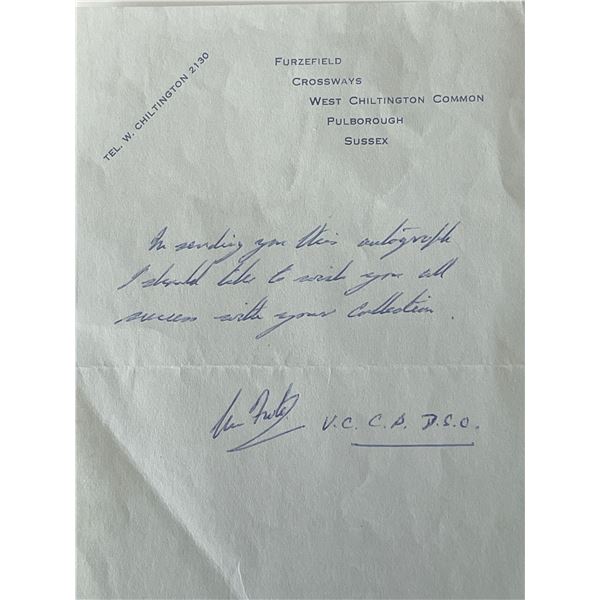 TEL. W. CHILTINGTON 2130
FURZEFIELD
CROSSWAYS
WEST CHILTINGTON COMMON
PULBOROUGH
SUSSEX
In sending you this autograph
I should like to wish you all
success with your collection.
V.C. C.B. D.S.O.